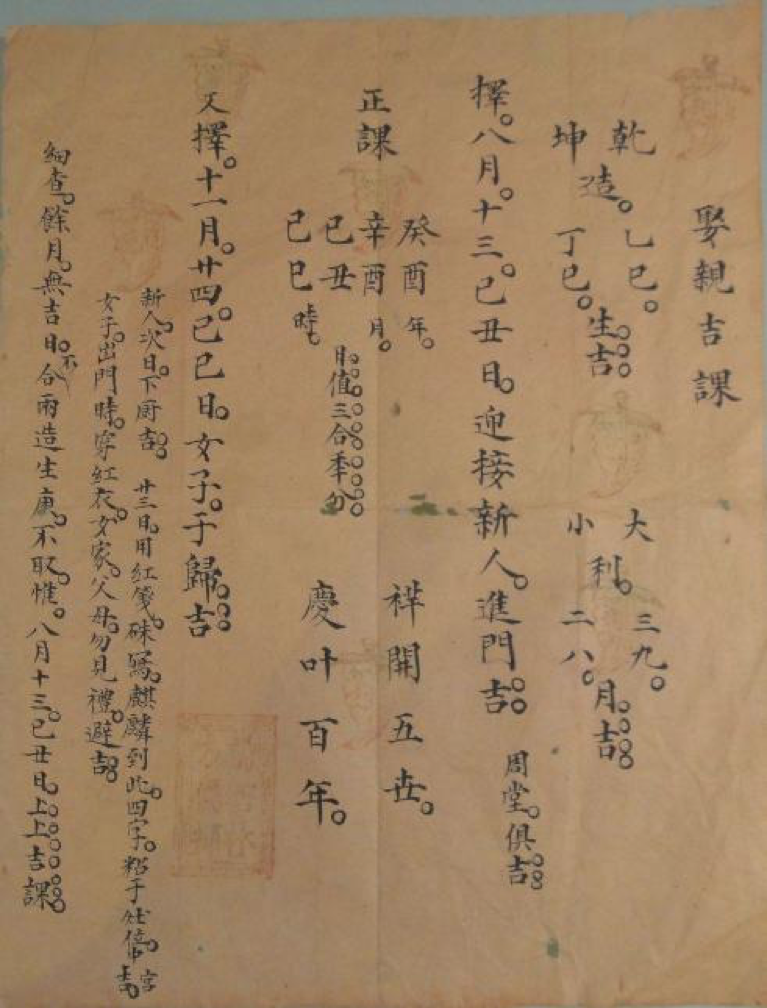 娶親吉課
乾造。乙巳。生吉
坤造。丁巳。生吉
大利。三九。月。吉
小利。二八。月。吉
擇。八月。十三。己丑日。迎接新人。進門吉
周堂。俱吉
正課
癸酉年。
辛酉月。
己丑日。值三合季分
己巳時。
祥開五世。
慶叶百年。
又擇。十一月。廿四。己巳日。女子。于歸。吉
新人。次日。下厨吉
廿三日。用紅箋。硃寫。麒麟到此。四字。粘于
女子。出門時。穿紅衣。女家。父母。勿見禮。避吉
細查。餘月。無吉日。不合兩造生庚。不取惟。八月十三。己丑日。上上吉課